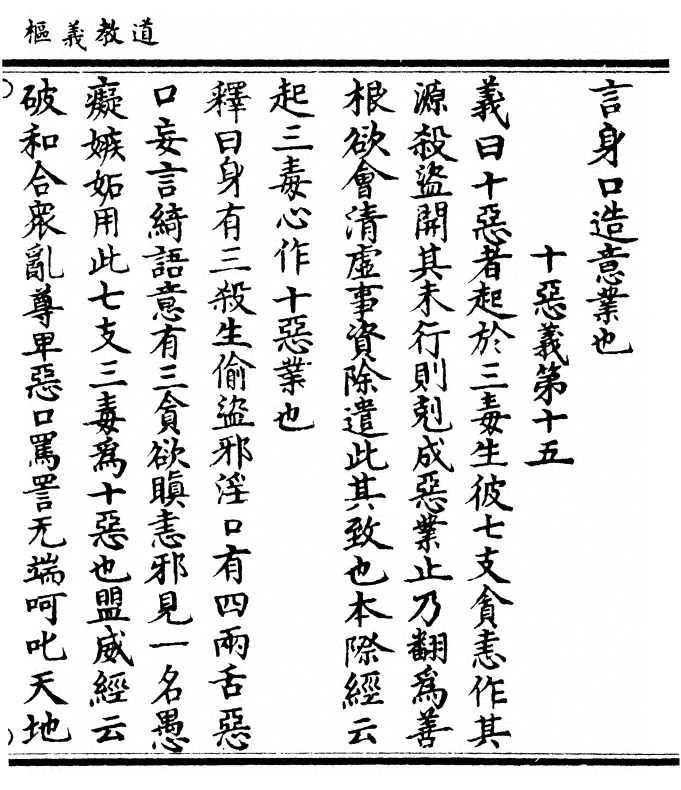 道教義樞
言身口造意業也
十惡義第十五
義曰十惡者起於三毒生彼七支貪恚作其
源殺盜開其末行則剋成惡業止乃翻為善
根欲會清虛事資除遣此其致也本際經云
起三毒心作十惡業也
釋曰身有三殺生偷盜邪淫口有四兩舌惡
口妄言綺語意有三貪欲瞋恚邪見一名愚
癡嫉妬用此七支三毒為十惡也盟威經云
破和合眾亂尊卑惡口罵詈无端呵叱天地